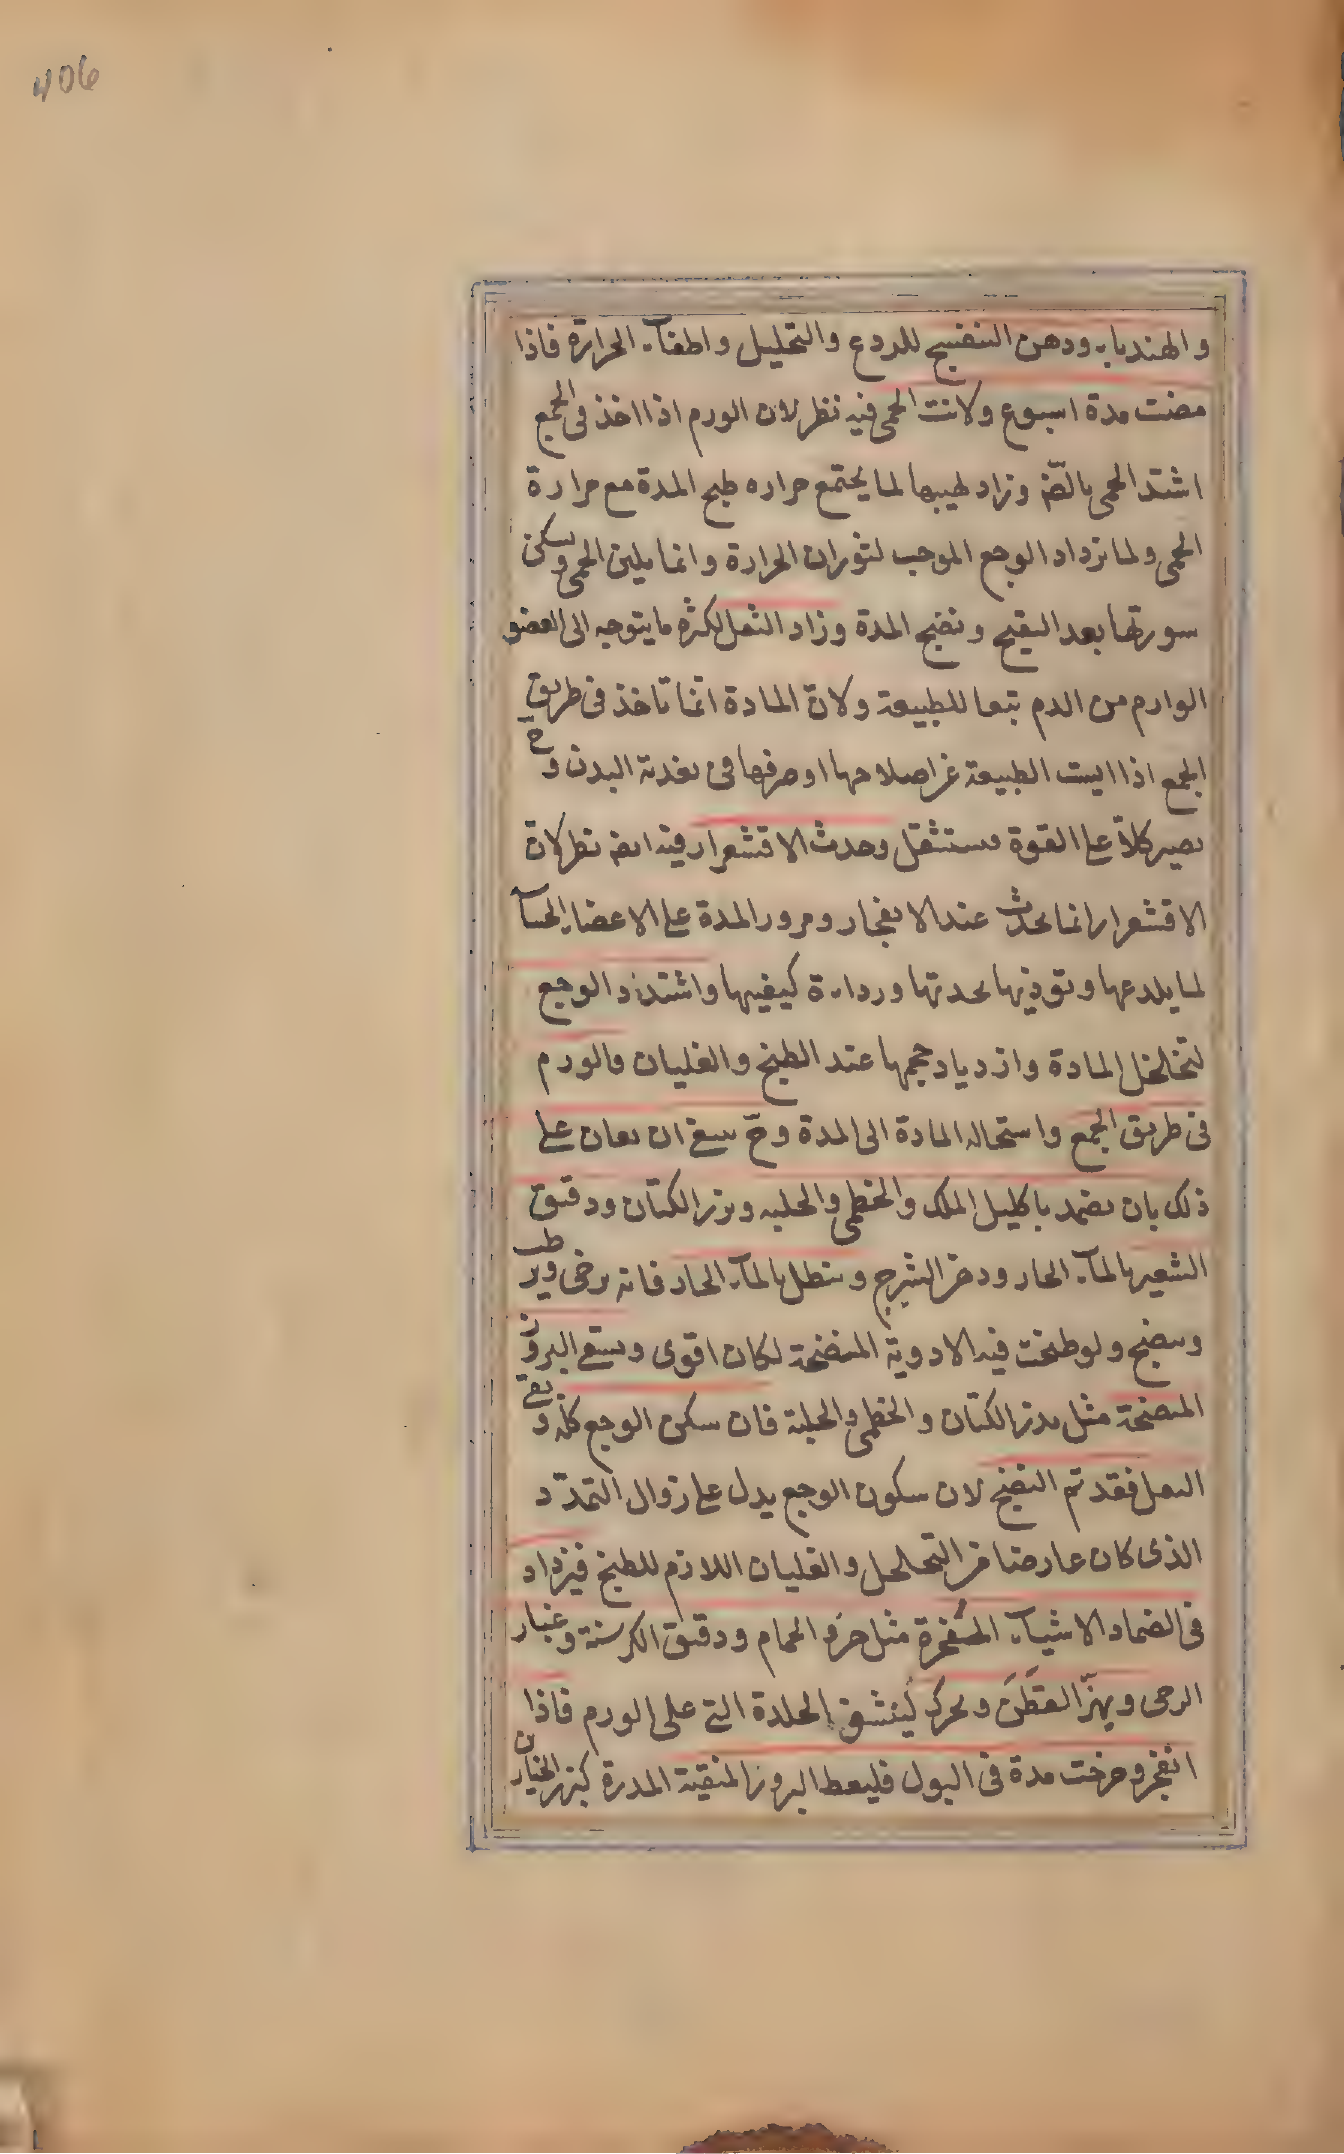 406
والهندباء ودهن البنفسج للردع والتحليل واطفاء الحرارة فاذا
مضت مدة اسبوع ولانت الحمى فيه نظر لان الورم اذا اخذ فى الجمع
اشتد الحمى بالضم وزاد لهيبها لما يجتمع حراره طبخ المدة مع حرارة
الحمى ولما تزداد الوجع الموجب لثوران الحرارة وانما يلين الحمى وسكن
سورتها بعد التقيح ونضج المدة وزاد الثقل لكثرة ما يتوجه الى العضو
الوارم من الدم تبعا للطبيعة ولان المادة انما تاخذ فى طريق
الجمع اذا ايست الطبيعة عن اصلاحها او صرفها فى تغذية البدن وح
تصير كلا على القوة فستثقل وحدث الاقشعرار فيه ايضا نظر لان
الاقشعرار انما يحدث عند الانفجار ومرور المدة على الاعضاء الحساسة
لما يلدعها وتوذيها بحدتها ورداءة كيفيتها واشتد الوجع
لتخلخل المادة وازدياد حجمها عند الطبخ والغليان فالورم
فى طريق الجمع واستحاله المادة الى المدة وح ينبغى ان يعان على
ذلك بان يضمد باكليل الملك والخطمى والحلبه وبزر الكتان ودقيق
الشعير بالماء الحار ودهن الشيرج وينطل بالماء الحار فانه يرخى ويرطب
وينضج ولو طبخت فيه الادوية المنضجة لكان اقوى ويسقى البزور
المنضجة مثل بزر الكتان والخطمى والحلبة فان سكن الوجع كله وبقى
الثقل فقد تم النضج لان سكون الوجع يدل على زوال التمدد
الذى كان عارضا من التخلخل والغليان اللازم للطبخ فيزداد
فى الضماد الاشياء المفجرة مثل خرو الحمام ودقيق الكرسنة وغبار
الرحى ويهز القطن ويحرك لينشق الجلدة التى على الورم فاذا
انفجر وخرجت مدة فى البول فليعط البزور المنقية المدرة كبزر الخيارين